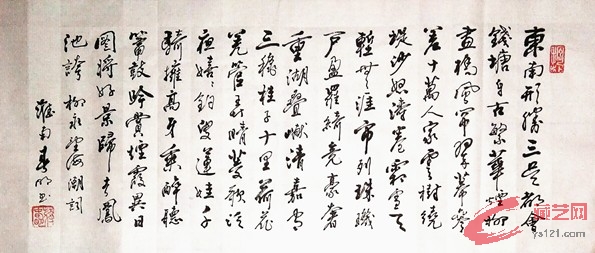 東南形勝三吳都會
錢塘自古繁華煙柳
畫橋風簾翠幕參
差十萬人家雲樹繞
堤沙怒濤卷霜雪天
塹無涯市列珠璣
戶盈羅綺競豪奢
重湖疊巘清嘉有
三秋桂子十里荷花
羌管弄晴菱歌泛
夜嬉嬉釣叟蓮娃千
騎擁高牙乘醉聽
簫鼓吟賞煙霞異日
圖將好景歸去鳳
池誇 柳永望海潮詞
南春明書
藏艺网
ys121.com